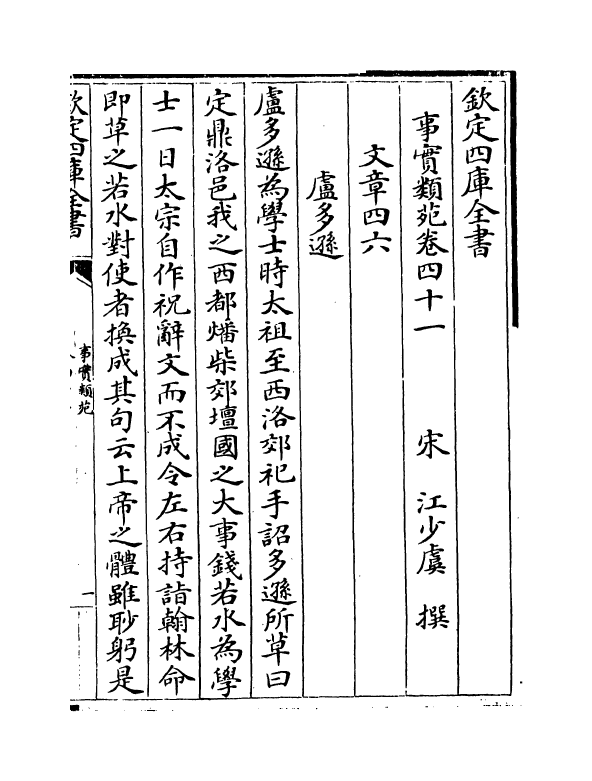 欽定四庫全書
事實類苑卷四十一　宋　江少虞　撰
文章四六
盧多遜
盧多遜為學士時太祖至西洛郊祀手詔多遜所草曰
定鼎洛邑我之西都燔柴郊壇國之大事錢若水為學
士一日太宗自作祝辭文而不成令左右持詣翰林命
即草之若水對使者換成其句云上帝之體雖眇躬是
欽定四庫全書
事實類苑
一